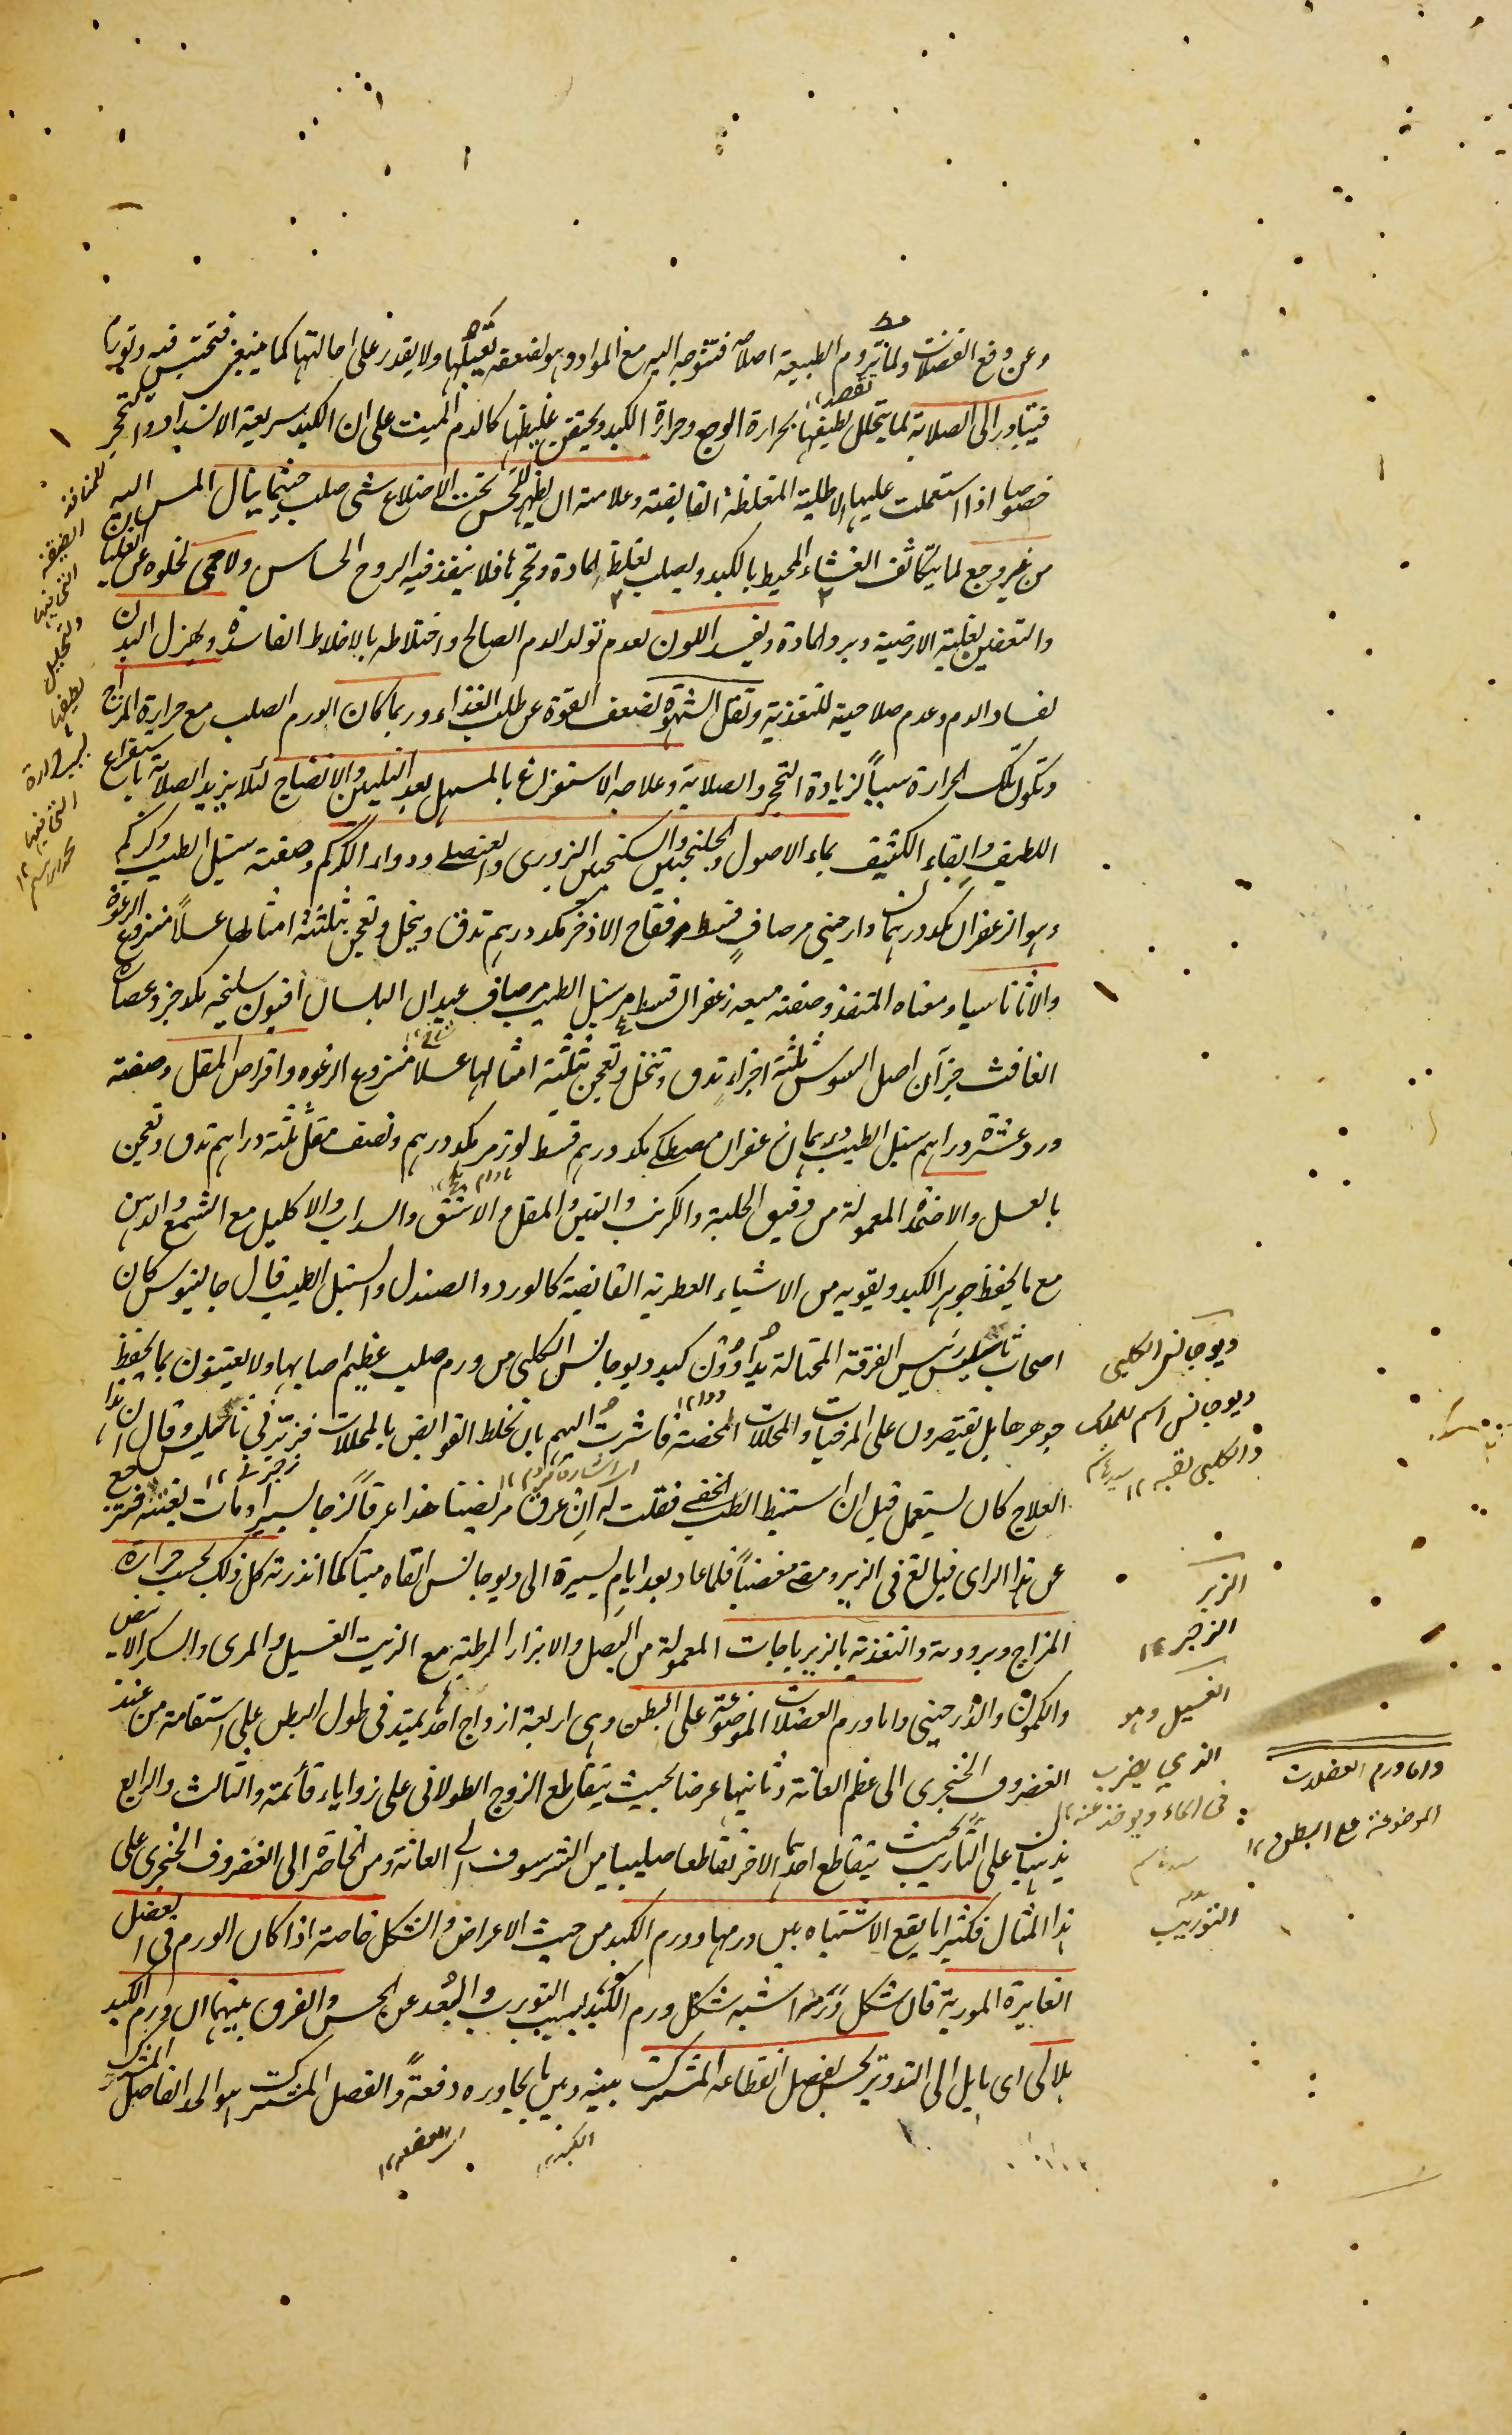 وعن دفع الفضلات ولما تروم الطبيعة اصلاحه فتتوجه اليه مع المواد وهو لضعفه يقبلها ولا يقدر على احالتها كما ينبغى فتحتبس فيه وتورم
فيتبادر الى الصلابة لما يتحلل لطيفها بحرارة الوجع وحرارة الكبد ويحتقن غليظها كالدم الميت على ان الكبد سريعة الانسداد والتحجر
خصوصا اذا استعملت عليها الاطلية المغلظة القابضة وعلامته ان يظهر للحس تحت الاضلاع شى صلب حيثما ينال المس اليه
من غير وجع لما يتكاثف الغشاء المحيط بالكبد ويصلب لغلظ المادة وتحجرها فلا ينفذ فيه الروح الحساس ولا حمى لخلوه عن الغليان
والتعفن لغلبة الارضية وبرد المادة ويفسد اللون لعدم تولد الدم الصالح واختلاطه بالاخلاط الفاسدة ويهزل البدن
لفساد الدم وعدم صلاحيته للتغذية وتقل الشهوة لضعف القوة عن طلب الغذاء وربما كان الورم الصلب مع حرارة المزاج
وتكون تلك الحرارة سببا لزيادة التحجر والصلابة وعلاجه الاستفراغ بالمسهل بعد التليين والانضاج لئلا يزيد الصلابة باستفراغ
اللطيف وابقاء الكثيف بماء الاصول والجلنجبين والسكنجبين البزورى والعنصلى ودواء الكركم وصفته سنبل الطيب وكركم
وهو الزعفران مكد درهمان دارصينى مر صاف قسط فقاح الاذخر مكد درهم تدق وينخل وتعجن بثلثة امثالها عسلا منزوع الرغوة
والاثاناسيا ومعناه المنقذ وصفته ميعه زعفران قسط مر سنبل الطيب مر صاف عيدان البلسان افيون سليخه مكد جزء عصارة
الغافث جزآن اصل السوس ثلثة اجزاء تدق وتنخل وتعجن بثلثة امثالها عسلا منزوع الرغوه واقراص المقل وصفته
ورد عشرة دراهم سنبل الطيب درهمان زعفران مصطكى مكد درهم قسط لوز مر مكد درهم ونصف مقل ثلثة دراهم تدق وتعجن
بالعسل والاضمدة المعمولة من دقيق الحلبة والكرنب والتين والمقل والاشق والسداب والاكليل مع الشمع والدهن
مع ما يحفظ جوهر الكبد ويقويه من الاشياء العطرية القابضة كالورد والصندل والسنبل الطيب قال جالينوس كان
اصحاب ثاسلس رئيس الفرقة المحتالة يداوون كبد ديوجانس الكلبى من ورم صلب عظيم اصابها ولا يعتنون بما يحفظ
جوهرها بل يقتصرون على المرخيات والمحللات المحضة فاشرت اليهم بان نخلط القوابض بالمحللات فزبرنى ثاسلس وقال ان هذا
العلاج كان يستعمل قبل ان استنبط الطب الخفى فقلت له ان عرق مريضنا هذا عرقا لزجا يسيرا ومات بغتة فترجع
عن هذا الراى فبالغ فى الزبر ومضى مغضبا فلما عاد بعد ايام يسيرة الى ديوجانس القاه ميتا كما انذرته كل ذلك بحسب حرارة
المزاج وبرودته والتغذية بالزيرباجات المعمولة من البصل والابزار الرطبة مع الزيت الغسيل والمرى والسكر الابيض
والكمون والدارصينى واما ورم العضلات الموضوعة على البطن وهى اربعة ازواج احدها يمتد فى طول البطن على استقامة من عند
الغضروف الخنجرى الى عظم العانة وثانيها عرضا بحيث يتقاطع الزوج الطولانى على زوايا قائمة والثالث والرابع
يذهبان على التاريب بحيث يتقاطع احدهما الاخر تقاطعا صليبيا من الشرسوف الى العانة ومن الخاصرة الى الغضروف الخنجرى على
هذا المثال فكثيرا ما يقع الاشتباه بين ورمها وورم الكبد من حيث الاعراض والشكل خاصة اذا كان الورم فى العضل
الغايرة المورية فان شكل ورمه اشبه شكل ورم الكبد بسبب التورب والبعد عن الحس والفرق بينهما ان ورم الكبد
هلالى اى مايل الى التدوير يحس بفصل انقطاعه المشترك بينه وبين ما يجاوره دفعة والفصل المشترك هو الحد الفاصل المشترك
ديوجانس الكلبى
ديوجانس اسم للملك
والكلبى لقبه ١٢
الزبر
الزجر ١٢
الغسيل وهو
الذي يضرب
فى الماء ويوخذ عنه
واما ورم العضلات
الموضوعة على البطن ١٢
التوريب
الكبد ١٢